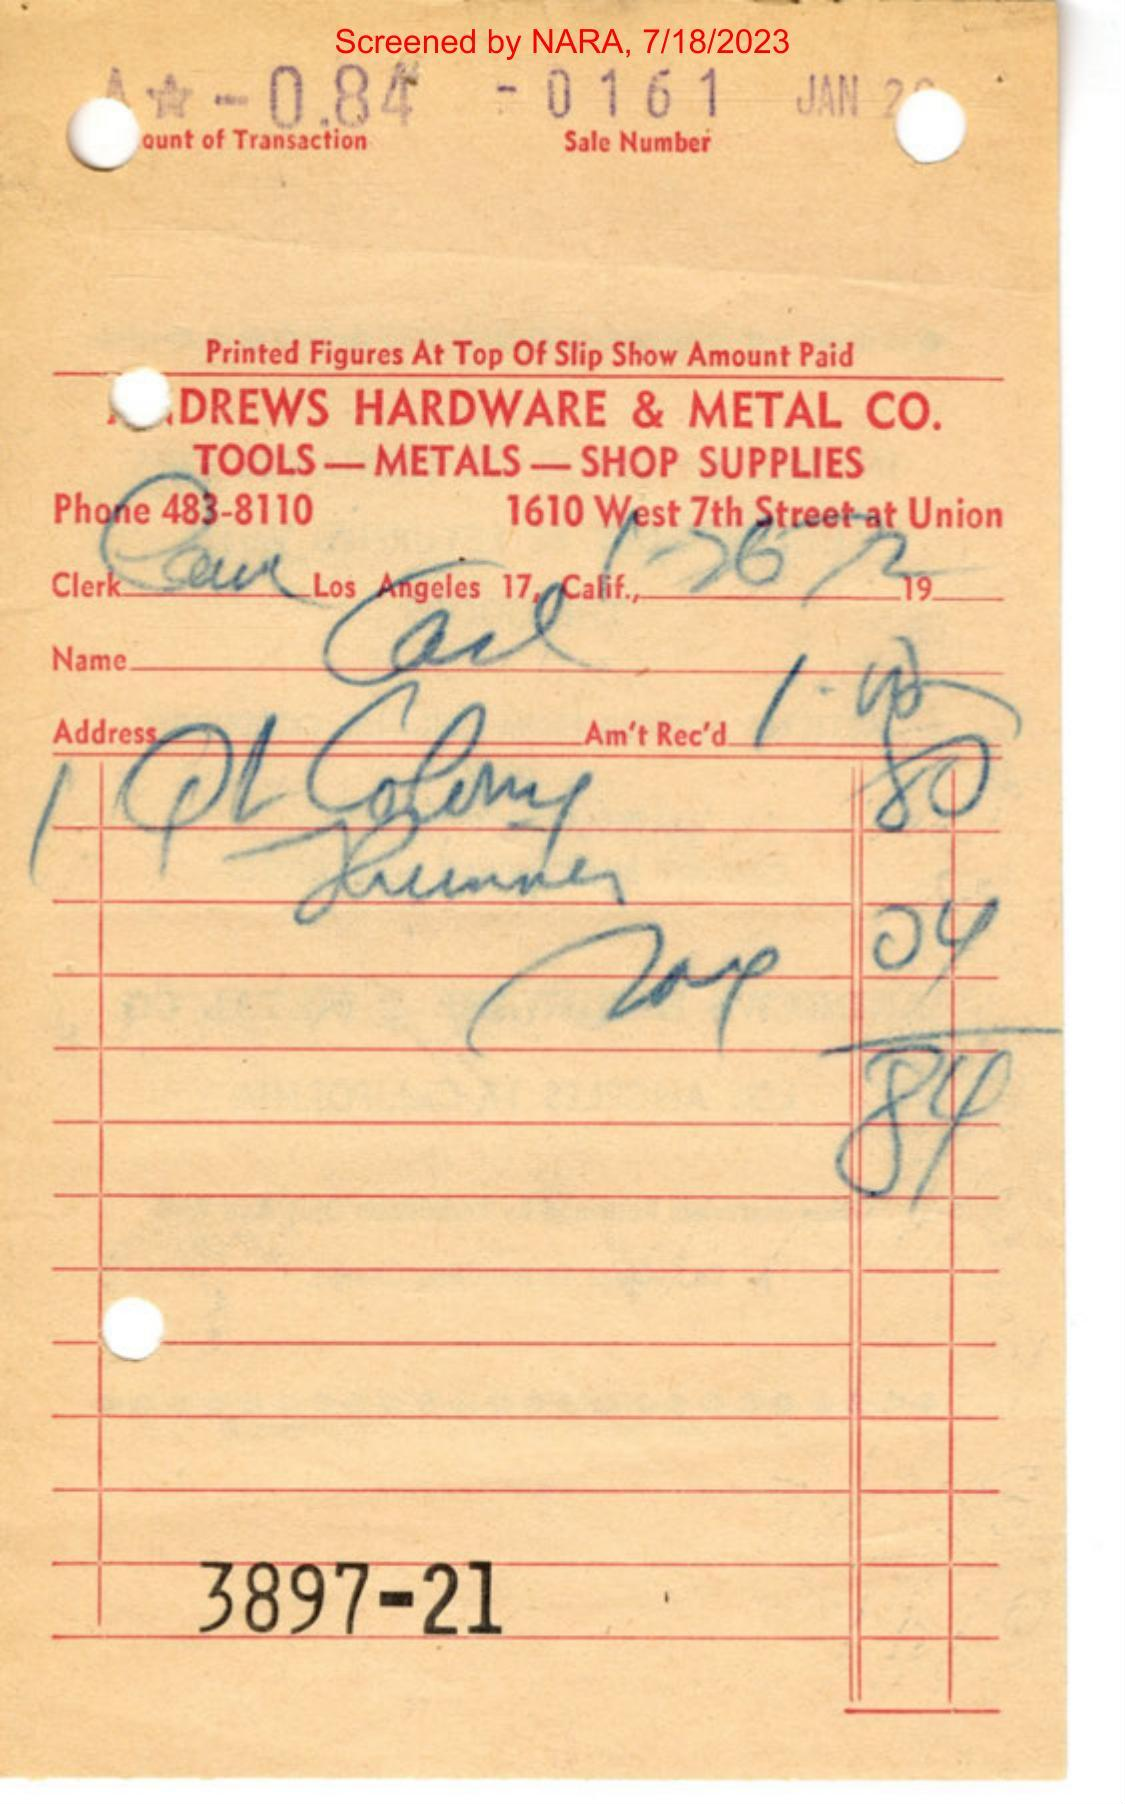 Screened by NARA, 7/18/2023
A ☆ - 0.84 - 0161 JAN 2
ount of Transaction Sale Number
Printed Figures At Top Of Slip Show Amount Paid
DREWS HARDWARE & METAL CO.
TOOLS — METALS — SHOP SUPPLIES
Phone 483-8110 1610 West 7th Street at Union
Clerk Los Angeles 17, Calif., 1-26-72 19
Name
Address Am't Rec'd 1.00
1 Qt 80
Thinner
Tax 04
84
3897-21